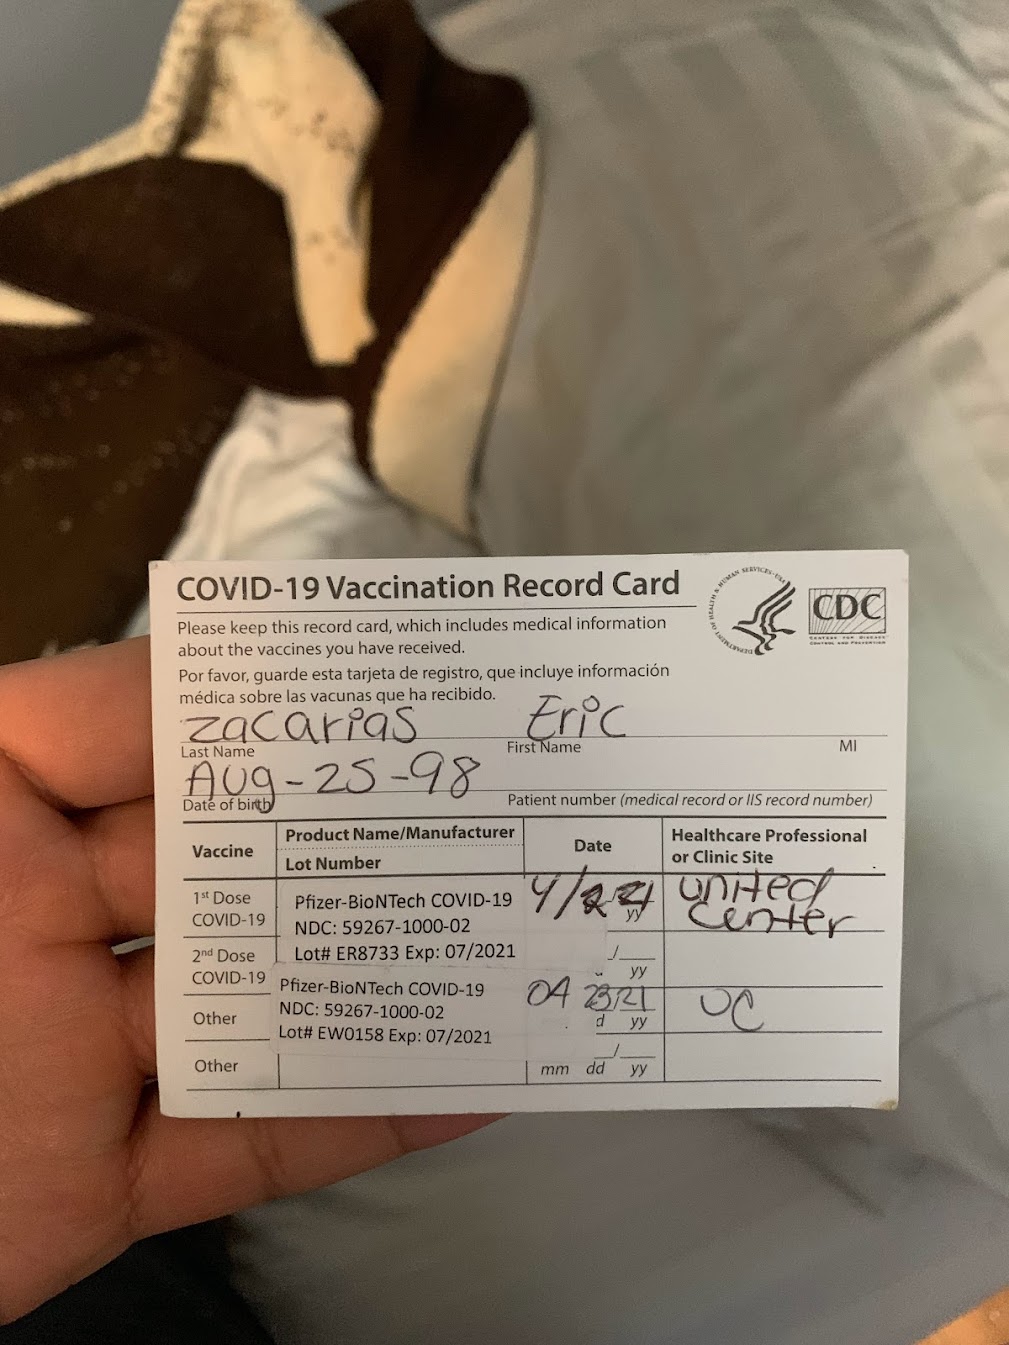 COVID-19 Vaccination Record Card
DEPARTMENT OF HEALTH & HUMAN SERVICES • USA
CDC
CENTERS FOR DISEASE
CONTROL AND PREVENTION
Please keep this record card, which includes medical information
about the vaccines you have received.
Por favor, guarde esta tarjeta de registro, que incluye información
médica sobre las vacunas que ha recibido.
Zacarias Eric
Last Name First Name MI
Aug-25-98
Date of birth Patient number (medical record or IIS record number)
Vaccine
Product Name/Manufacturer
Lot Number
Date
Healthcare Professional
or Clinic Site
1st Dose
COVID-19
Pfizer-BioNTech COVID-19
NDC: 59267-1000-02
Lot# ER8733 Exp: 07/2021
yy
United
Center
2nd Dose
COVID-19
/
yy
Other
Pfizer-BioNTech COVID-19
NDC: 59267-1000-02
Lot# EW0158 Exp: 07/2021
04 23 21
d yy
UC
Other
/
mm dd yy